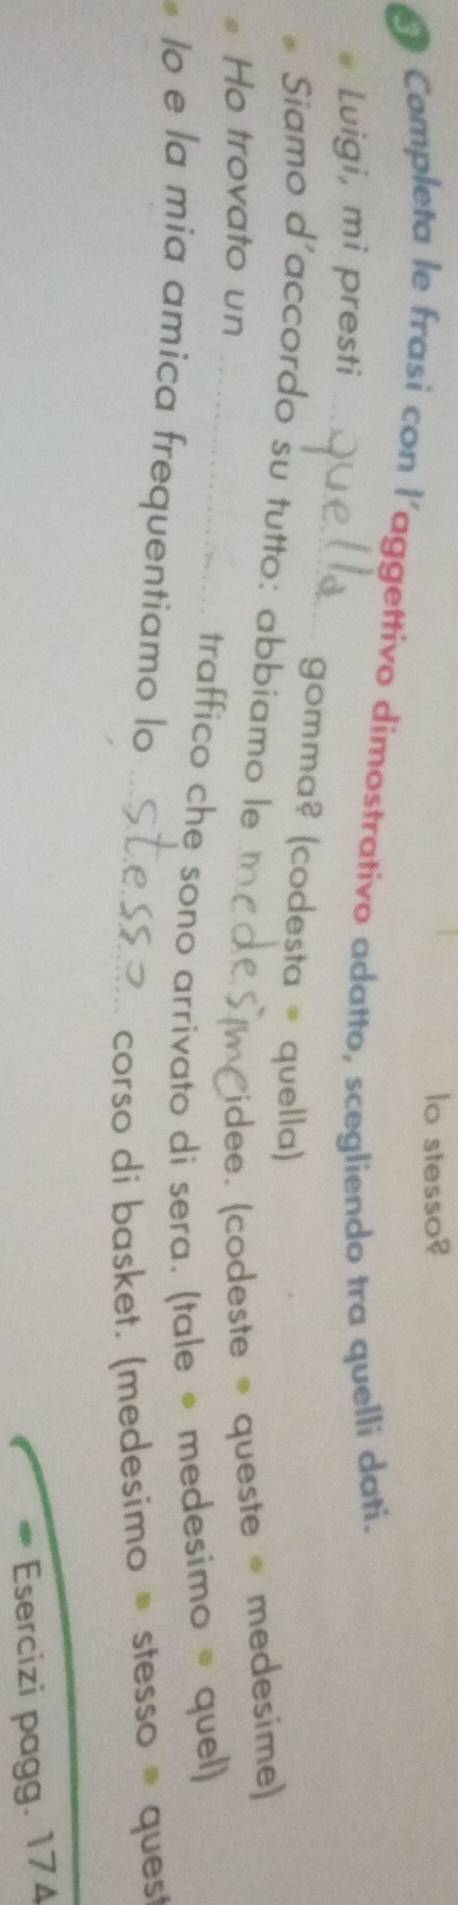 lo stesso?
3 Completa le frasi con l'aggettivo dimostrativo adatto, scegliendo tra quelli dati.
• Luigi, mi presti ...quella... gomma? (codesta • quella)
• Siamo d'accordo su tutto: abbiamo le medesime idee. (codeste • queste • medesime)
• Ho trovato un .................... traffico che sono arrivato di sera. (tale • medesimo • quel)
• Io e la mia amica frequentiamo lo ...stesso... corso di basket. (medesimo • stesso • quest
Esercizi pagg. 174